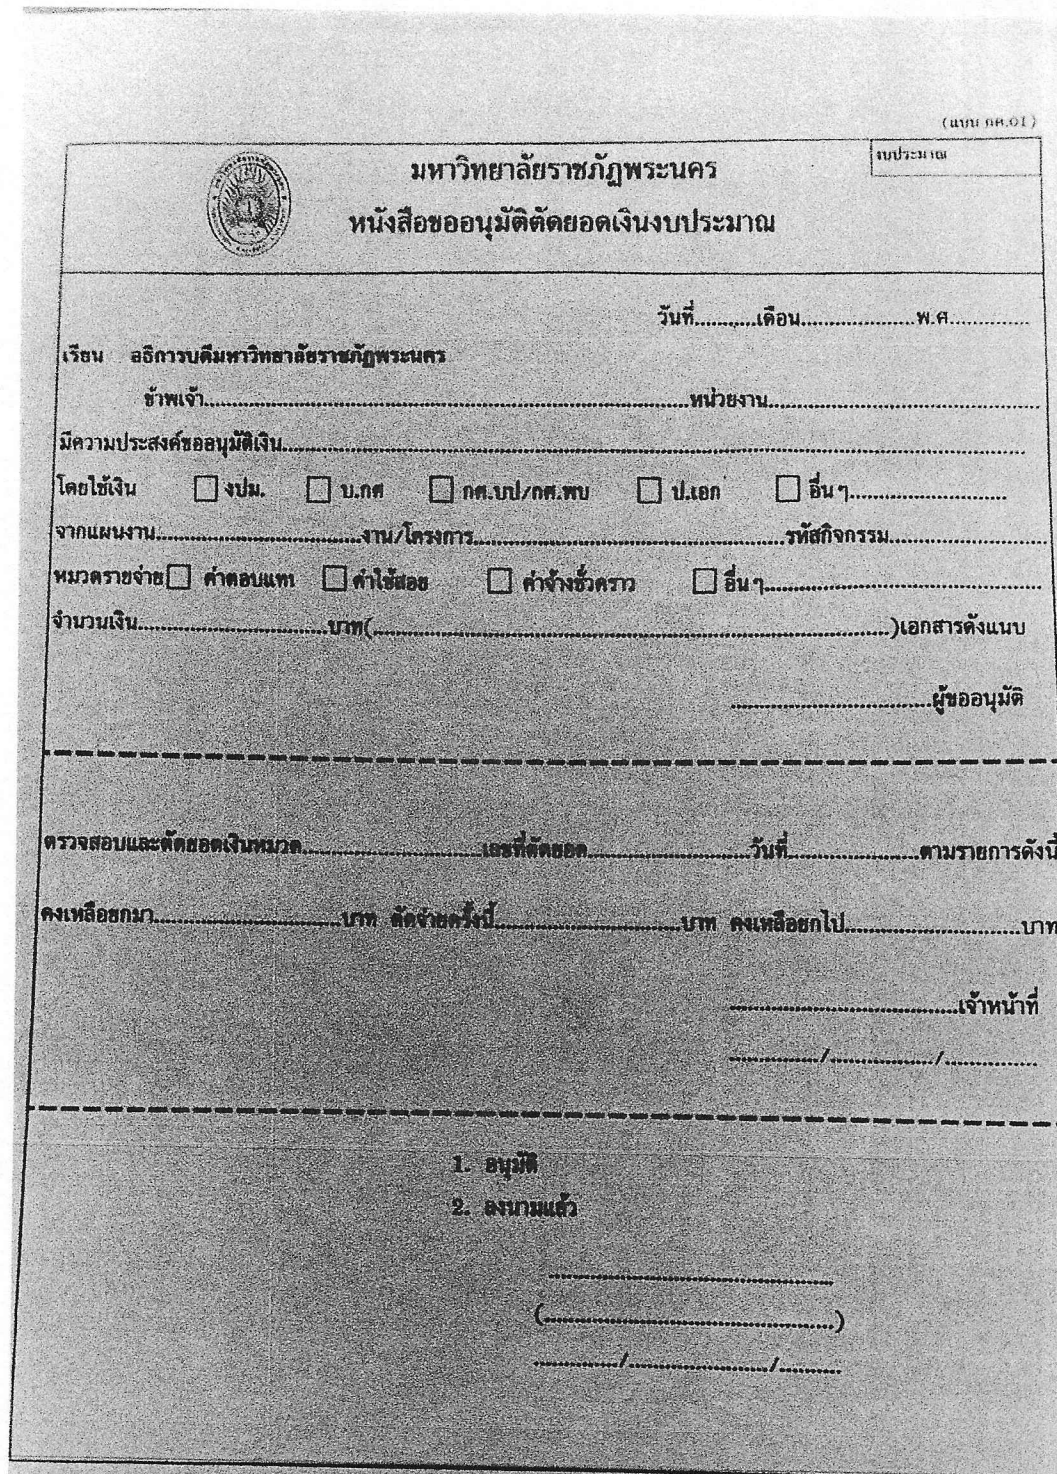 (แบบ กค.01)
งบประมาณ
มหาวิทยาลัยราชภัฏพระนคร
หนังสือขออนุมัติตัดยอดเงินงบประมาณ
วันที่............เดือน......................พ.ศ................
เรียน อธิการบดีมหาวิทยาลัยราชภัฏพระนคร
ข้าพเจ้า................................................................หน่วยงาน................................
มีความประสงค์ขออนุมัติเงิน................................................................
โดยใช้เงิน ☐ งปม. ☐ บ.กศ ☐ กศ.บป/กศ.พบ ☐ ป.เอก ☐ อื่นๆ................................
จากแผนงาน................................งาน/โครงการ................................รหัสกิจกรรม................................
หมวดรายจ่าย ☐ ค่าตอบแทน ☐ ค่าใช้สอย ☐ ค่าจ้างชั่วคราว ☐ อื่นๆ................................
จำนวนเงิน................................บาท(................................................................)เอกสารดังแนบ
................................ผู้ขออนุมัติ
ตรวจสอบและตัดยอดเงินหมวด................................เลขที่ตัดยอด................................วันที่......................ตามรายการดังนี้
คงเหลือยกมา................................บาท ตัดจ่ายครั้งนี้................................บาท คงเหลือยกไป................................บาท
................................เจ้าหน้าที่
................/................/................
1. อนุมัติ
2. ลงนามแล้ว
................................................
(................................................)
................/........................../............